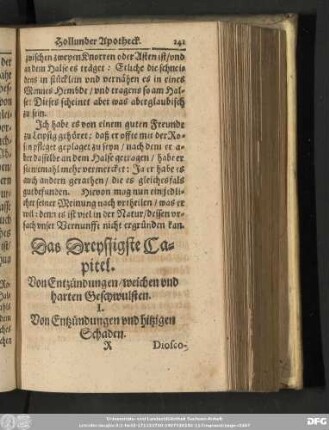 Hollunder Apotheck. 241
zwischen zweyen Knorren oder Asten ist/vnd
an dem Halse es träget: Etliche die schnei-
dens in stücklein vnd vernähen es in eines
Hembde/ vnd tragens so am Hal-
se: Dieses scheinet aber was aberglaubisch
zu sein.
Ich habe es von einem guten Freunde
zu Leipzig gehöret: daß er offte mit der Ro-
sin pfleget geplaget zu seyn/ nach dem er a-
ber dasselbe an dem Halse getragen/ habe er
sie niemahl mehr vermercket: Ja er habe es
auch andern gerathen/ die es gleichesfals
gut befunden. Hievon mag nun ein jedli-
cher seiner Meinung nach vrtheilen/ was er
wil: denn es ist viel in der Natur/dessen vr-
sach vnser Vernunfft nicht ergründen kan.
Das Dreyssigste Ca-
pitel.
Von Entzündungen/weichen vnd
harten Geschwulsten.
I.
Von Entzündungen vnd hitzigen
Schaden.
R Diosco-
Universitäts- und Landesbibliothek Sachsen-Anhalt
DFG